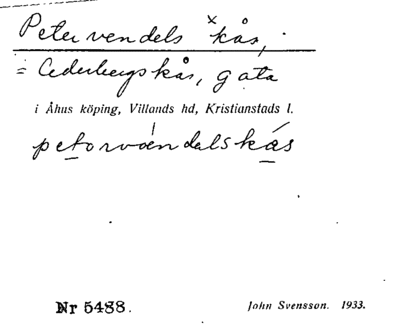 Petervendels ˣkås,
= Cederbergs kås, gata
i Åhus köping, Villands hd, Kristianstads l.
petorvændalskás
Nr 5488.
John Svensson. 1933.